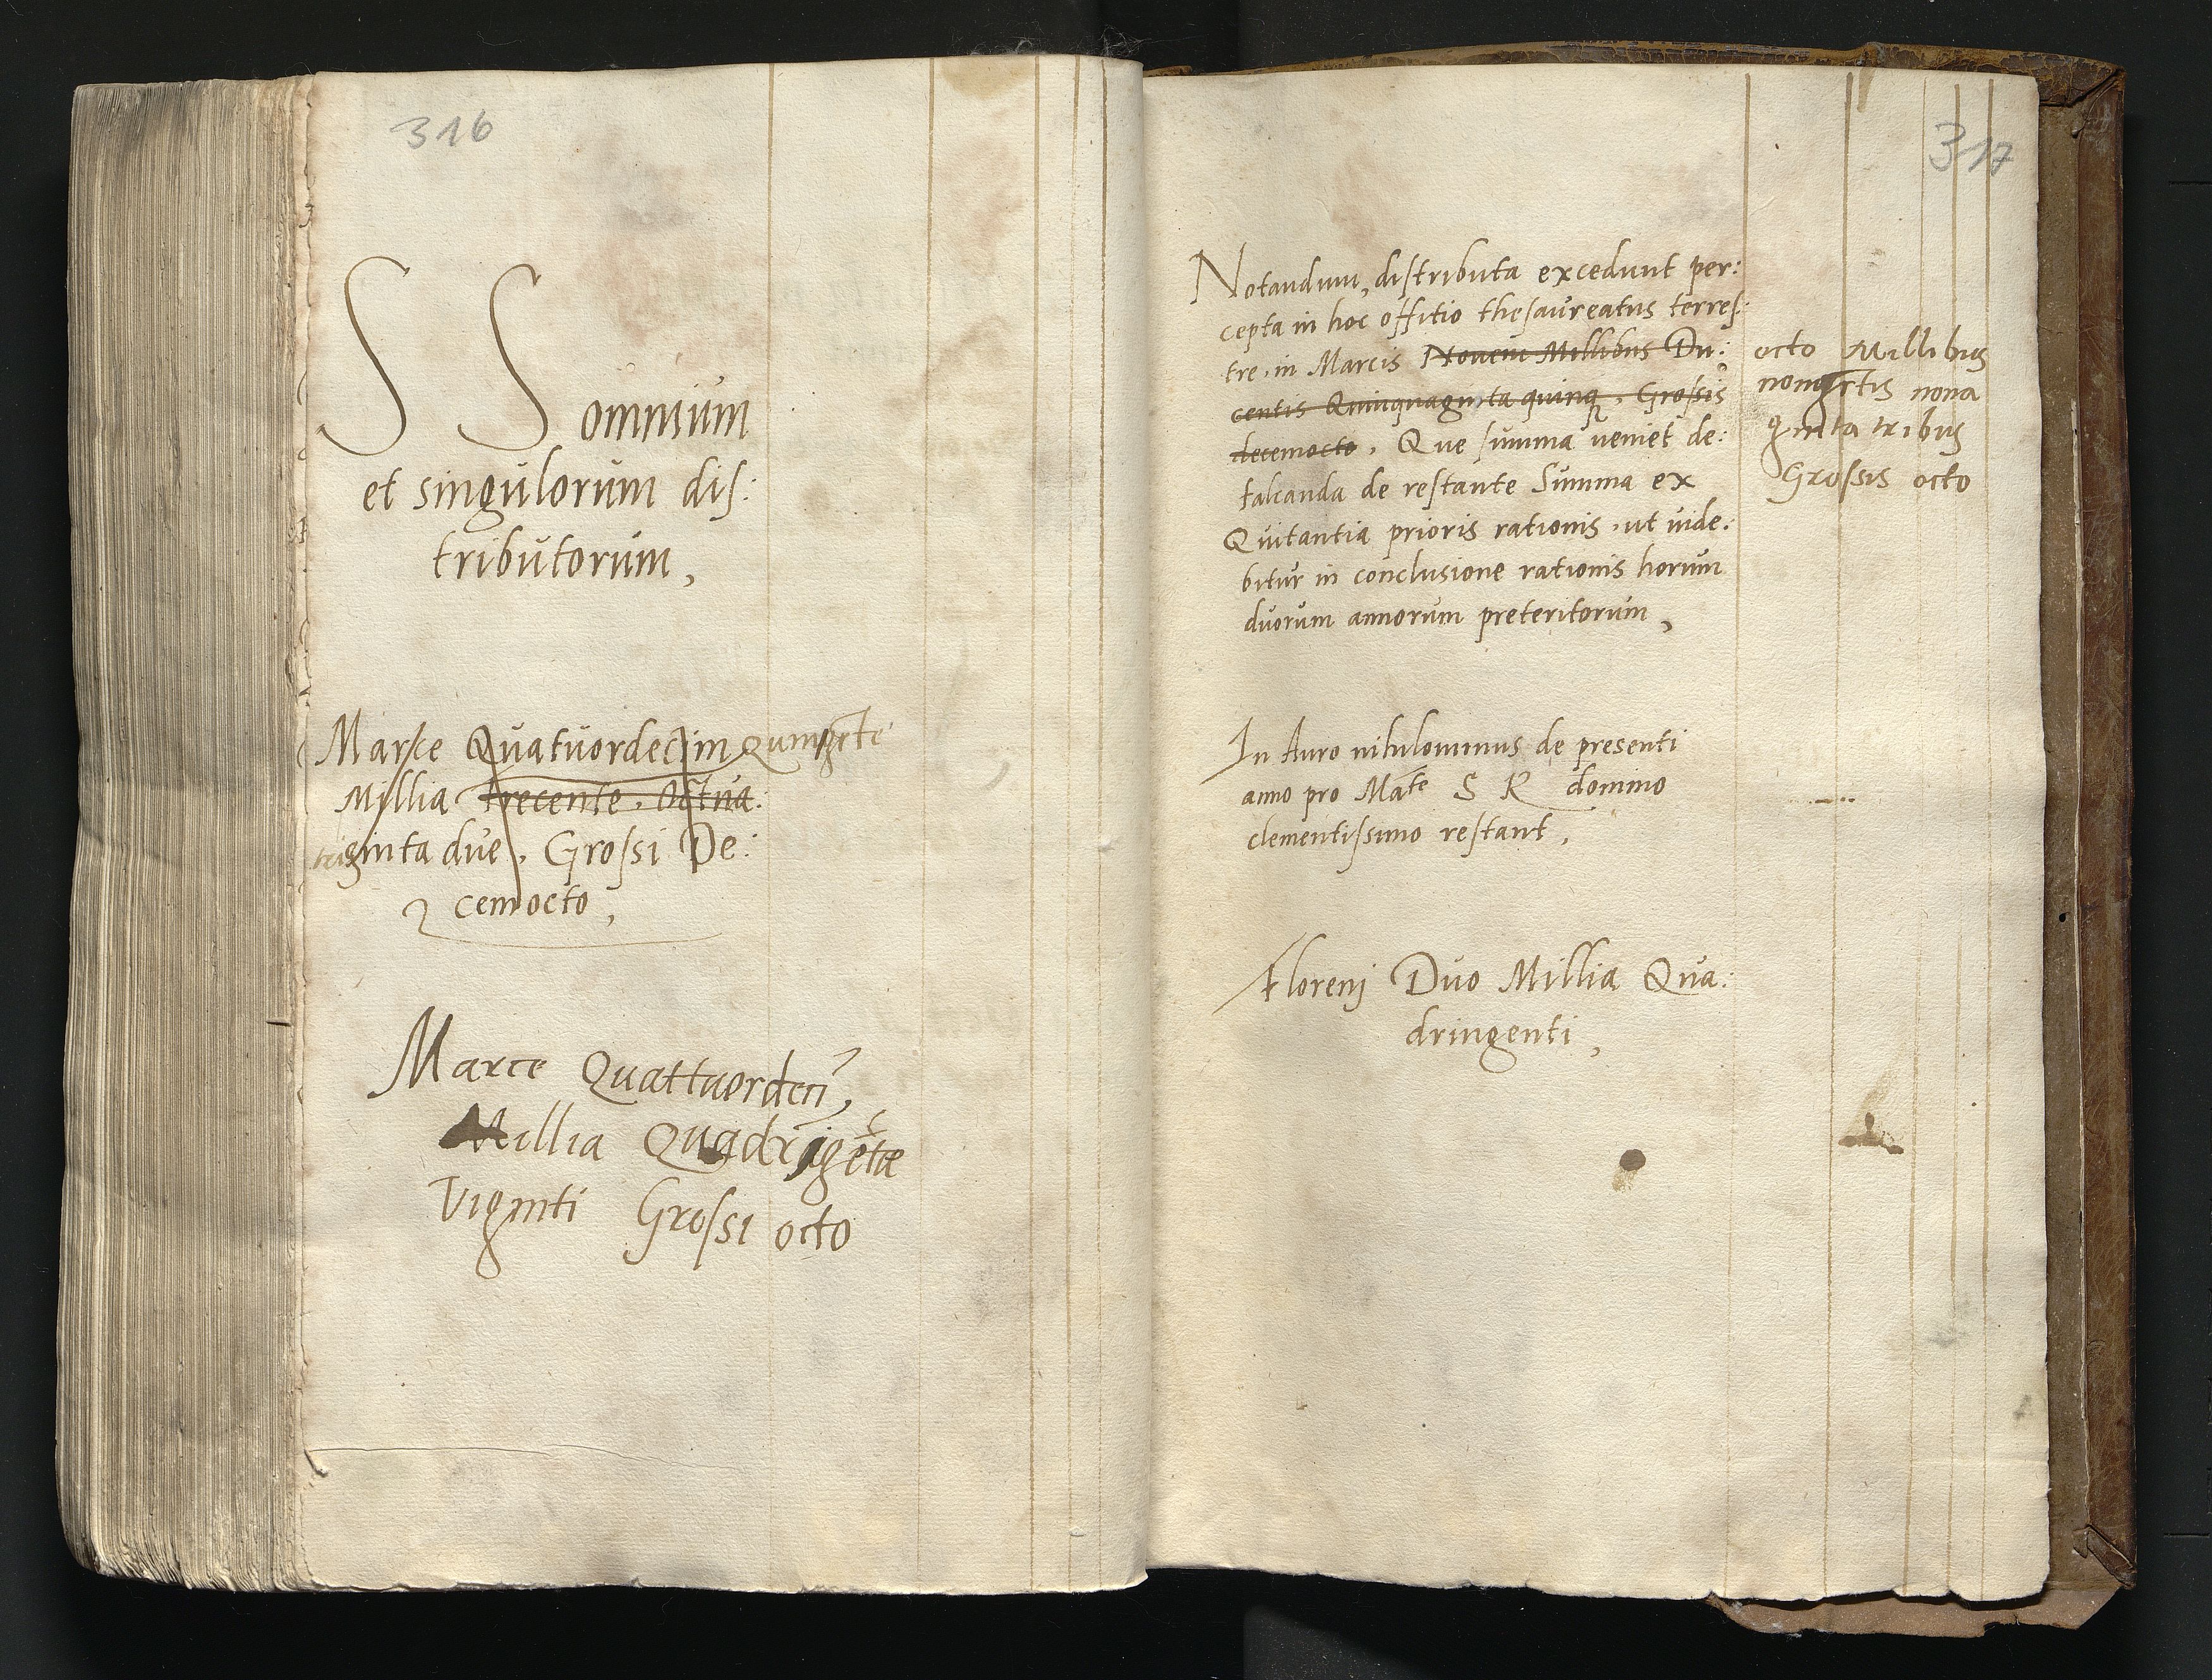 316
S S omnium
et singulorum dis:
tributorum,
Marce Quatuordecim quingẽte
Millia trecente, Octua:
triginta due, Grossi De:
cemocto,
Marce Quattuordecĩ,
Millia Quadrigẽte
Viginti Grossi octo
317
Notandum, distributa excedunt per:
cepta in hoc offitio thesaureatus terres:
tre, in Marcis Novem Millibus Du:
centis Quinquaginta quinq, Grossis
decemocto, Que summa veniet de:
falcanda de restante Summa ex
Quitantia prioris rationis, ut vide:
bitur in conclusione rationis horum
duorum annorum preteritorum,
octo Millibus
nongẽtis nona
ginta tribus
Grossis octo
In Auro nihilominus de presenti
anno pro Mate S R domino
clementissimo restant,
Florenj Duo Millia Qua:
dringenti,